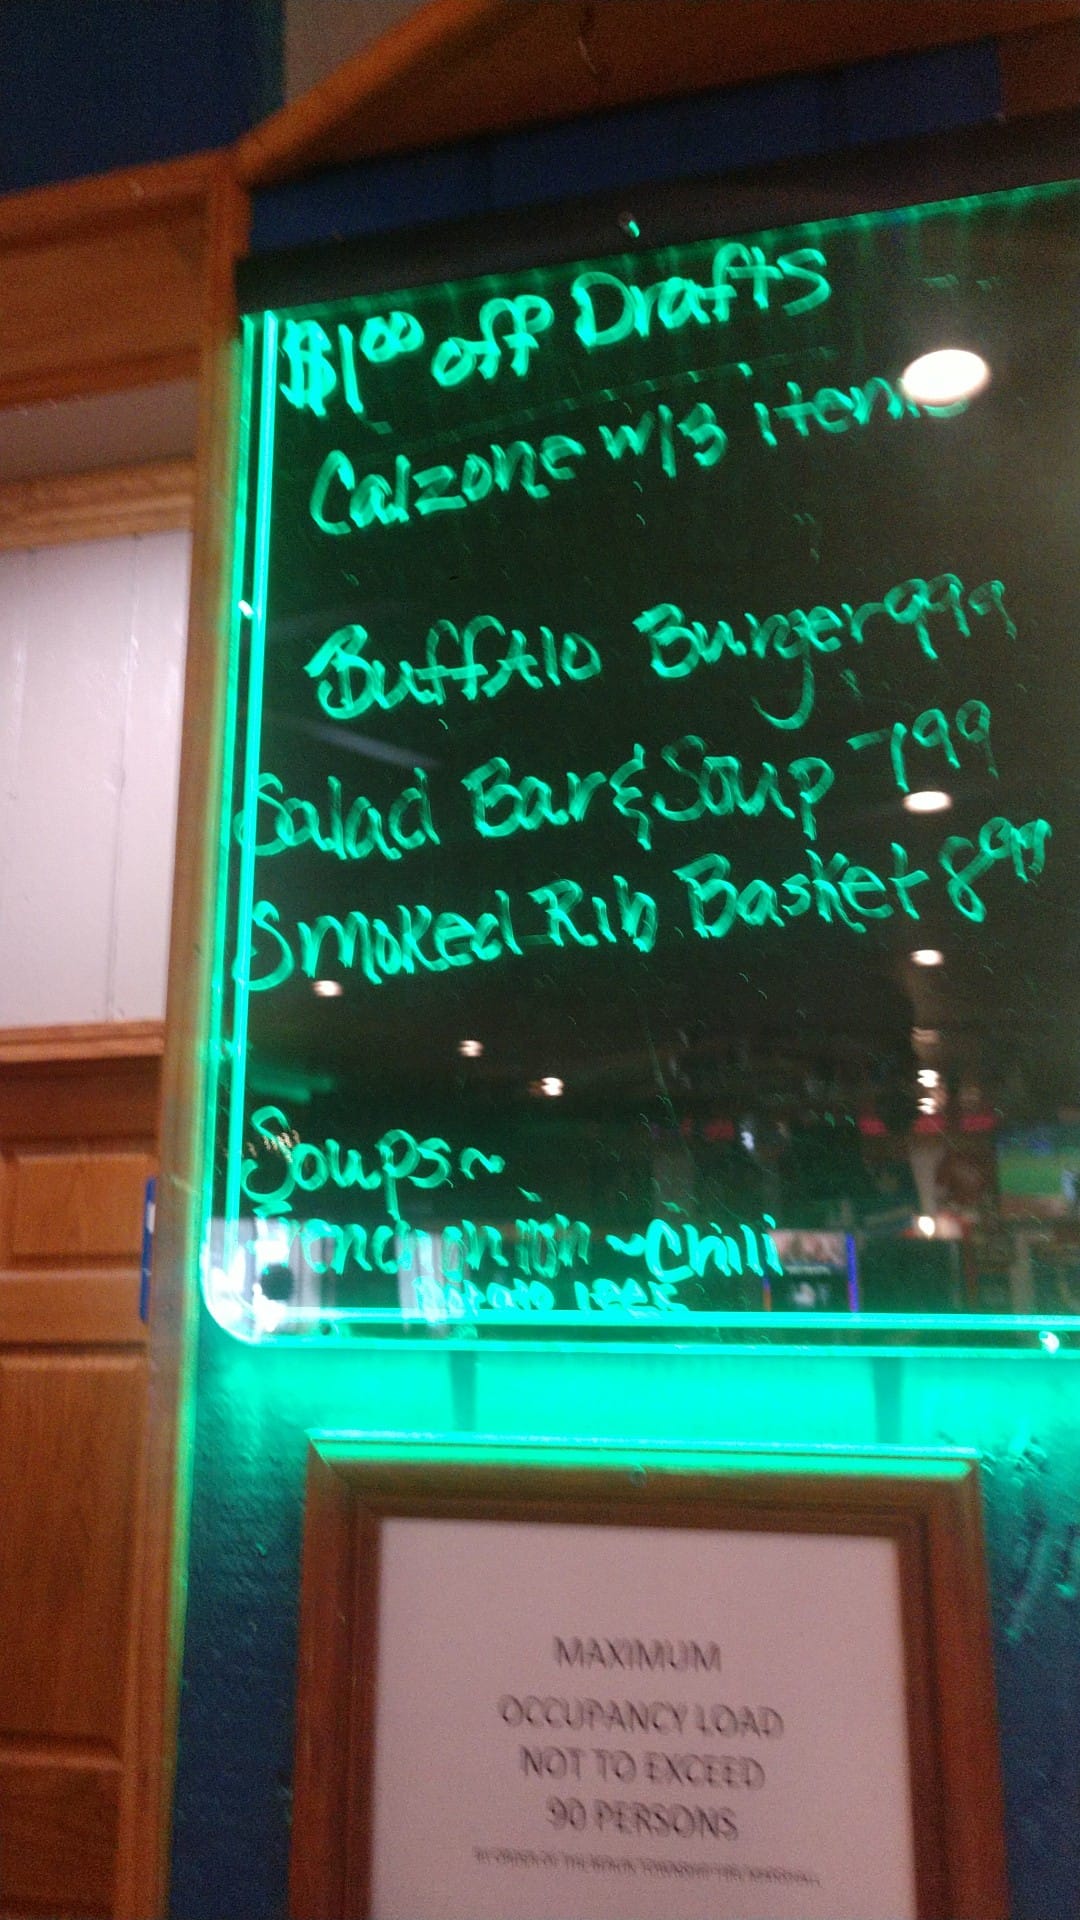 $1.00 off Drafts
Calzone w/3 items
Buffalo Burger 9 99
Salad Bar & Soup 7 99
Smoked Rib Basket 8 99
Soups~
French onion ~Chili
Potato Leek
MAXIMUM
OCCUPANCY LOAD
NOT TO EXCEED
90 PERSONS
BY ORDER OF THE TOWNSHIP FIRE MARSHAL